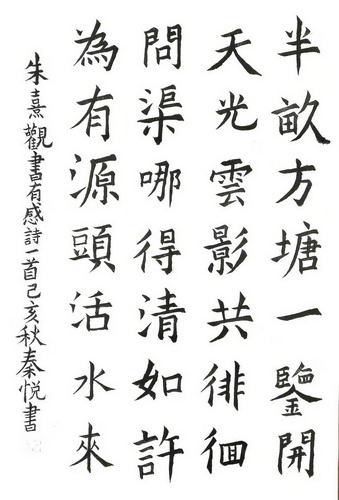 半畝方塘一鑒開
天光雲影共徘徊
問渠哪得清如許
為有源頭活水來
朱熹觀書有感詩一首己亥秋秦悦書